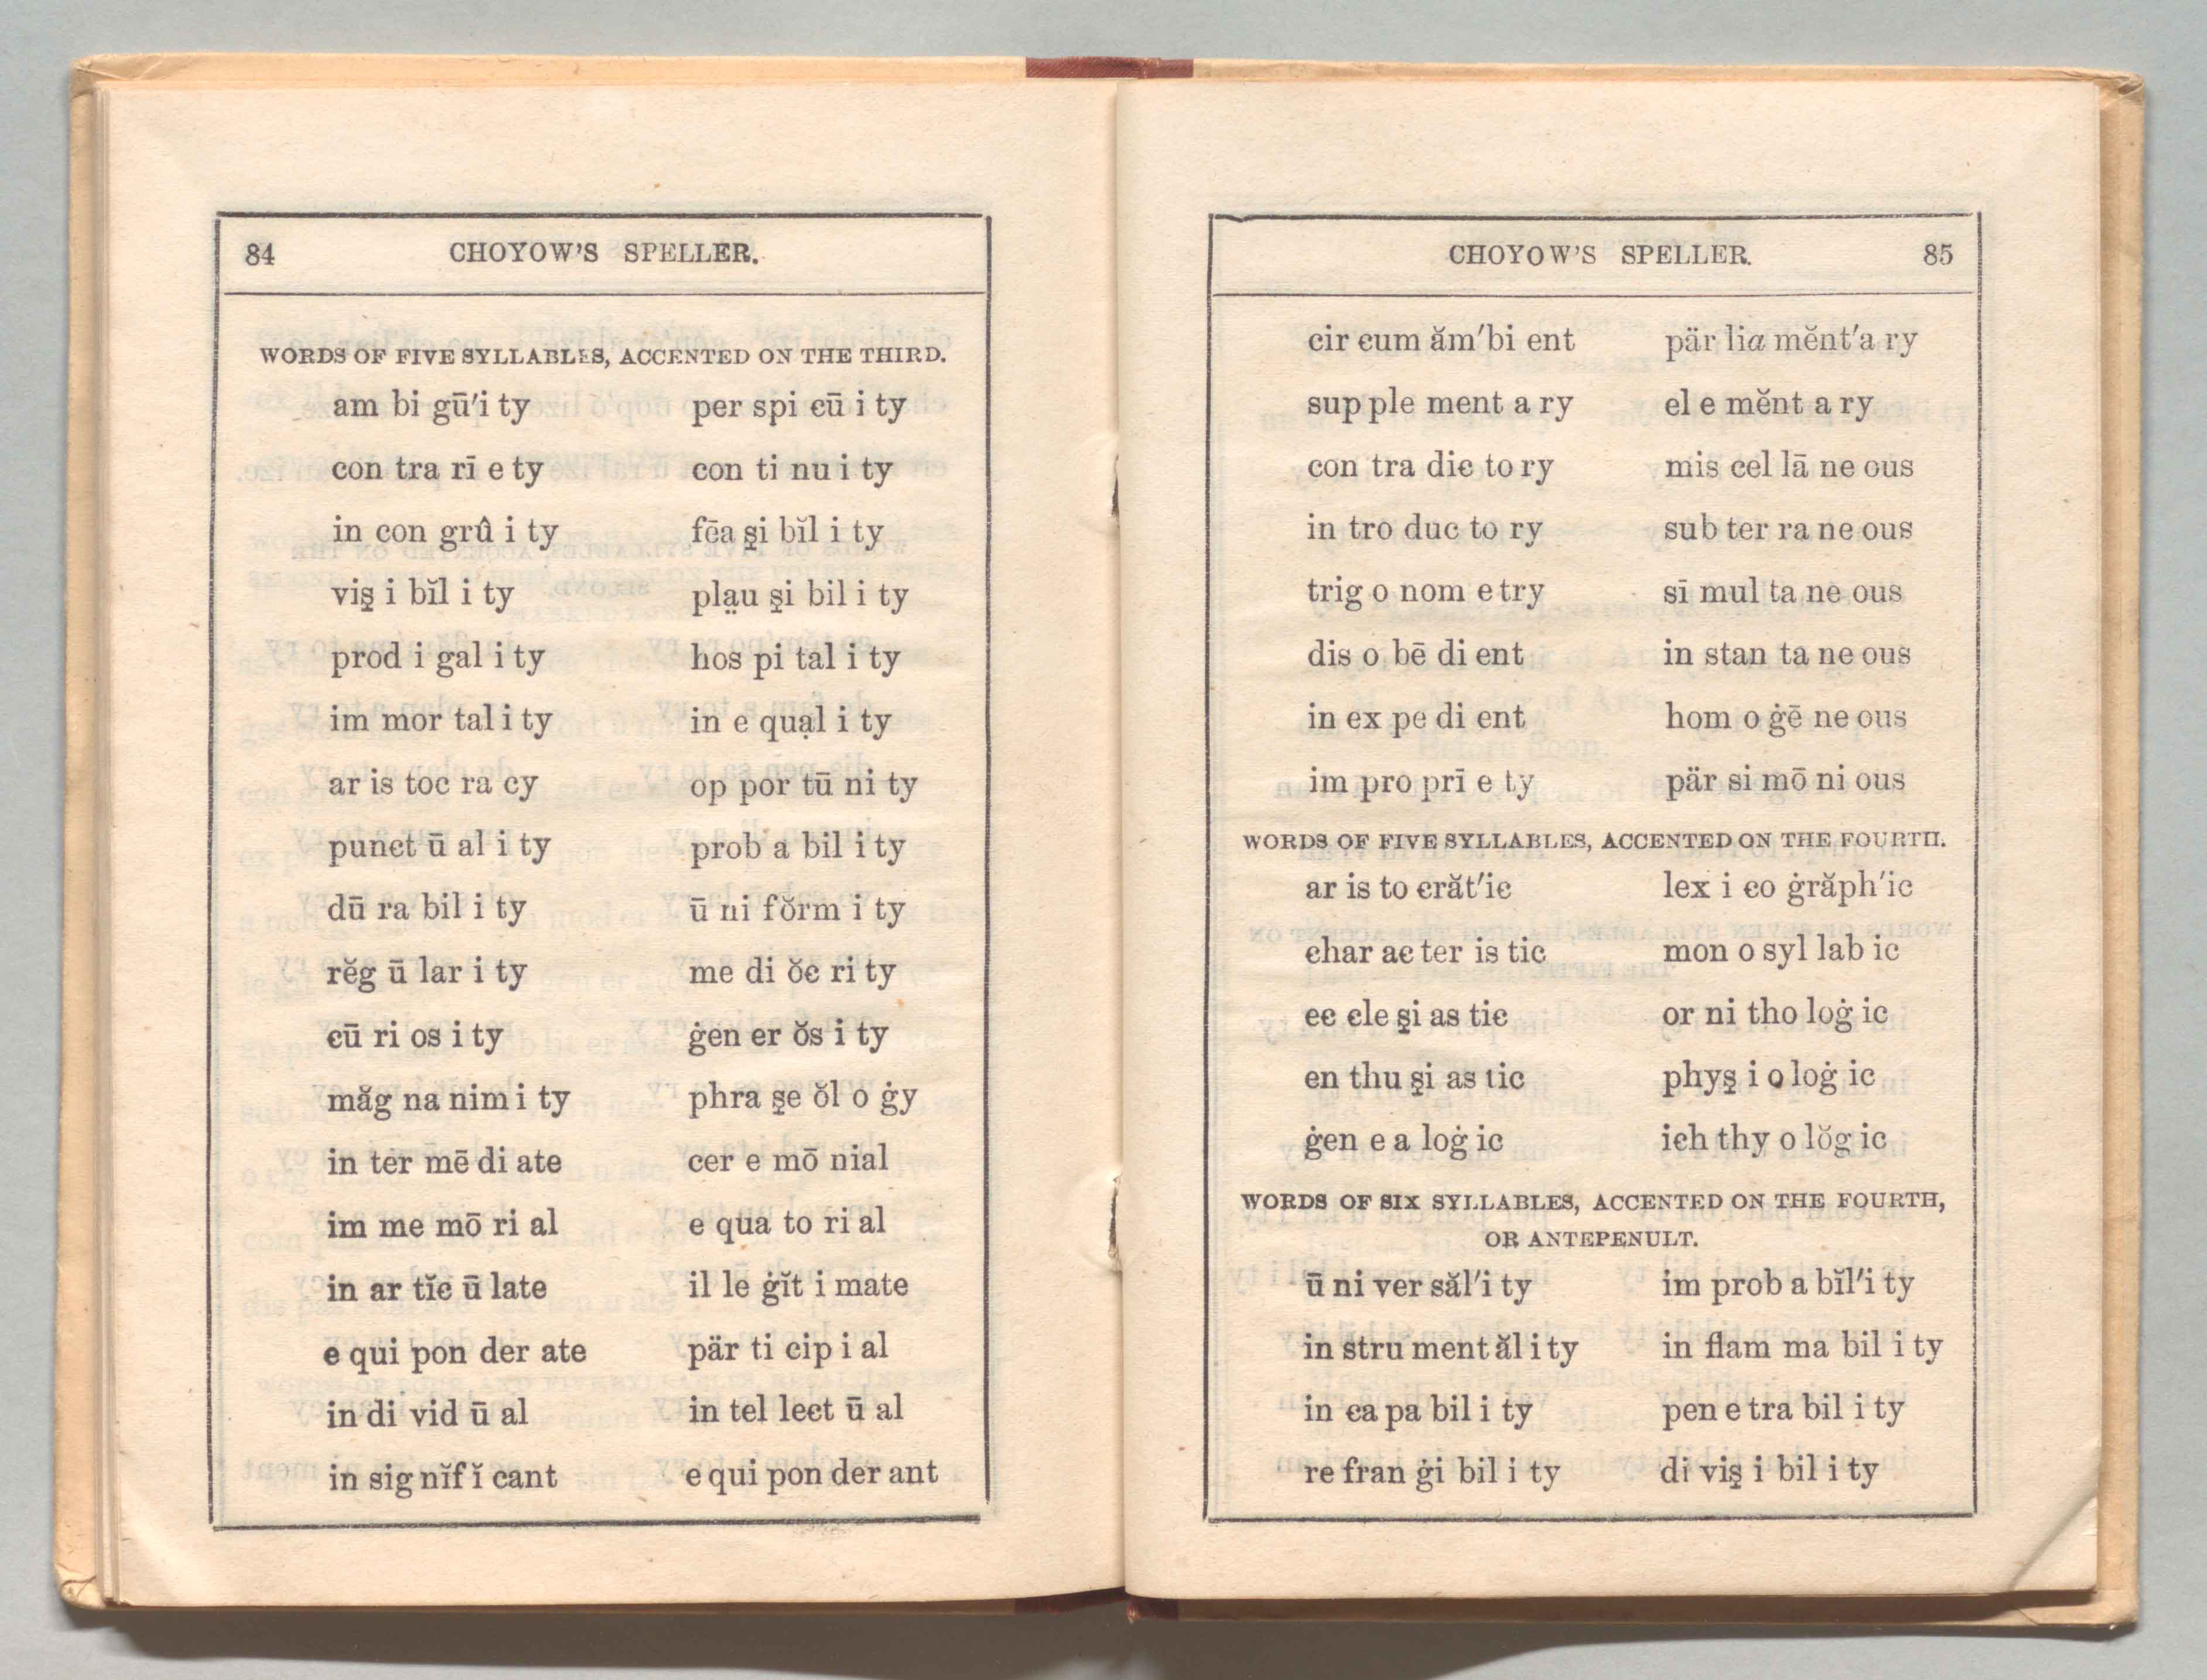 84 CHOYOW'S SPELLER.
WORDS OF FIVE SYLLABLES, ACCENTED ON THE THIRD.
am bi gū'i ty per spi ꞓū i ty
con tra rī e ty con ti nu i ty
in con grû i ty fēa s̱i bĭl i ty
vis̱ i bĭl i ty pla̤u s̱i bil i ty
prod i gal i ty hos pi tal i ty
im mor tal i ty in e quạl i ty
ar is toc ra cy op por tū ni ty
punꞓt ū al i ty prob a bil i ty
dū ra bil i ty ū ni fŏrm i ty
rĕg ū lar i ty me di ŏꞓ ri ty
ꞓū ri os i ty ġen er ŏs i ty
măg na nim i ty phra s̱e ŏl o ġy
in ter mē di ate cer e mō nial
im me mō ri al e qua to ri al
in ar tĭꞓ ū late il le ġĭt i mate
e qui pon der ate pär ti cip i al
in di vid ū al in tel leꞓt ū al
in sig nĭf ĭ cant e qui pon der ant
CHOYOW'S SPELLER. 85
cir ꞓum ăm'bi ent pär lia mĕnt'a ry
sup ple ment a ry el e mĕnt a ry
con tra diꞓ to ry mis cel lā ne ous
in tro duc to ry sub ter ra ne ous
trig o nom e try sī mul ta ne ous
dis o bē di ent in stan ta ne ous
in ex pe di ent hom o ġē ne ous
im pro prī e ty pär si mō ni ous
WORDS OF FIVE SYLLABLES, ACCENTED ON THE FOURTH.
ar is to ꞓrăt'iꞓ lex i ꞓo ġrăph'ic
ꞓhar aꞓ ter is tic mon o syl lab ic
eꞓ ꞓle s̱i as tiꞓ or ni tho loġ ic
en thu s̱i as tic phys̱ i o loġ ic
ġen e a loġ iꞓ iꞓh thy o lŏg ic
WORDS OF SIX SYLLABLES, ACCENTED ON THE FOURTH,
OR ANTEPENULT.
ū ni ver săl'i ty im prob a bĭl'i ty
in stru ment ăl i ty in flam ma bil i ty
in ꞓa pa bil i ty pen e tra bil i ty
re fran ġi bil i ty di vis̱ i bil i ty